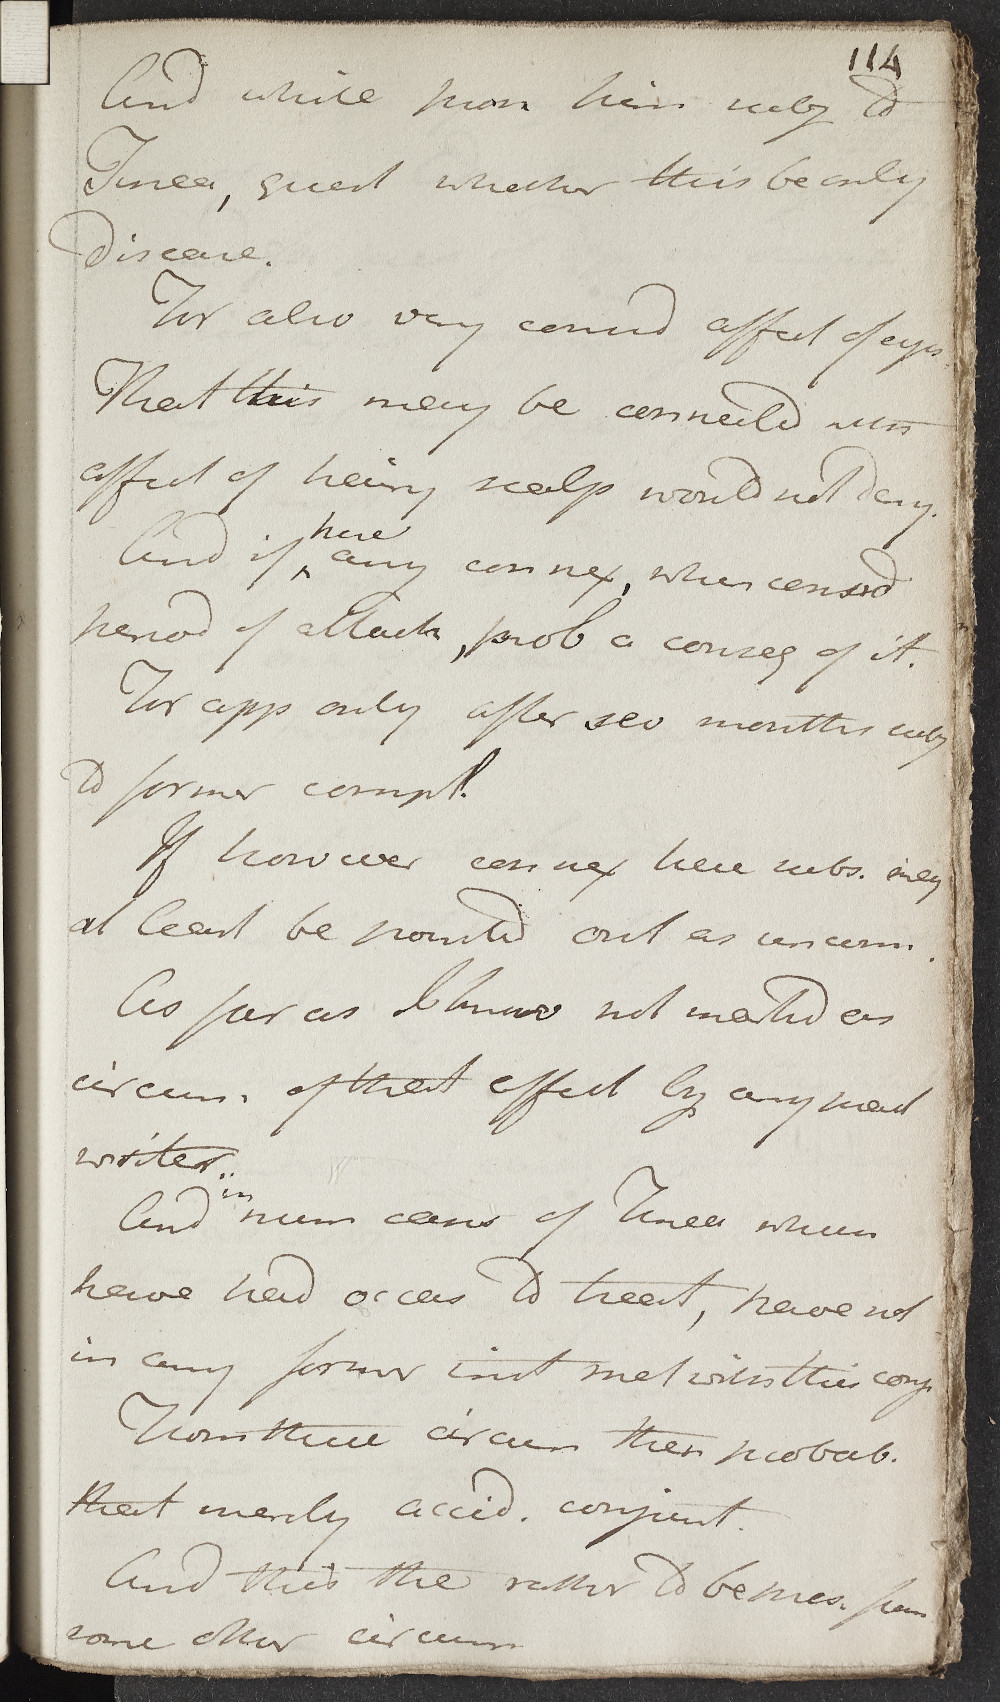 114
And while from him subj to
Tinea, quest whether this be only
Disease.
For also very consid affect of eyes
That this may be connected with
affect of hairy scalp would not deny.
And if here any connex, when consid
period of attack, prob a conseq of it.
For app only after sev months subj
to former compl.
If however connex here subs. may
at least be pointed out as uncom.
As far as I know not marked as
circum. of that effect by any pract
writer.
And in num cases of Tinea whom
have had occas to treat, have not
in any former inst met with this conj
From these circum then probab.
that merely accid. conjunct.
And this the rather to be pres. from
some other circum